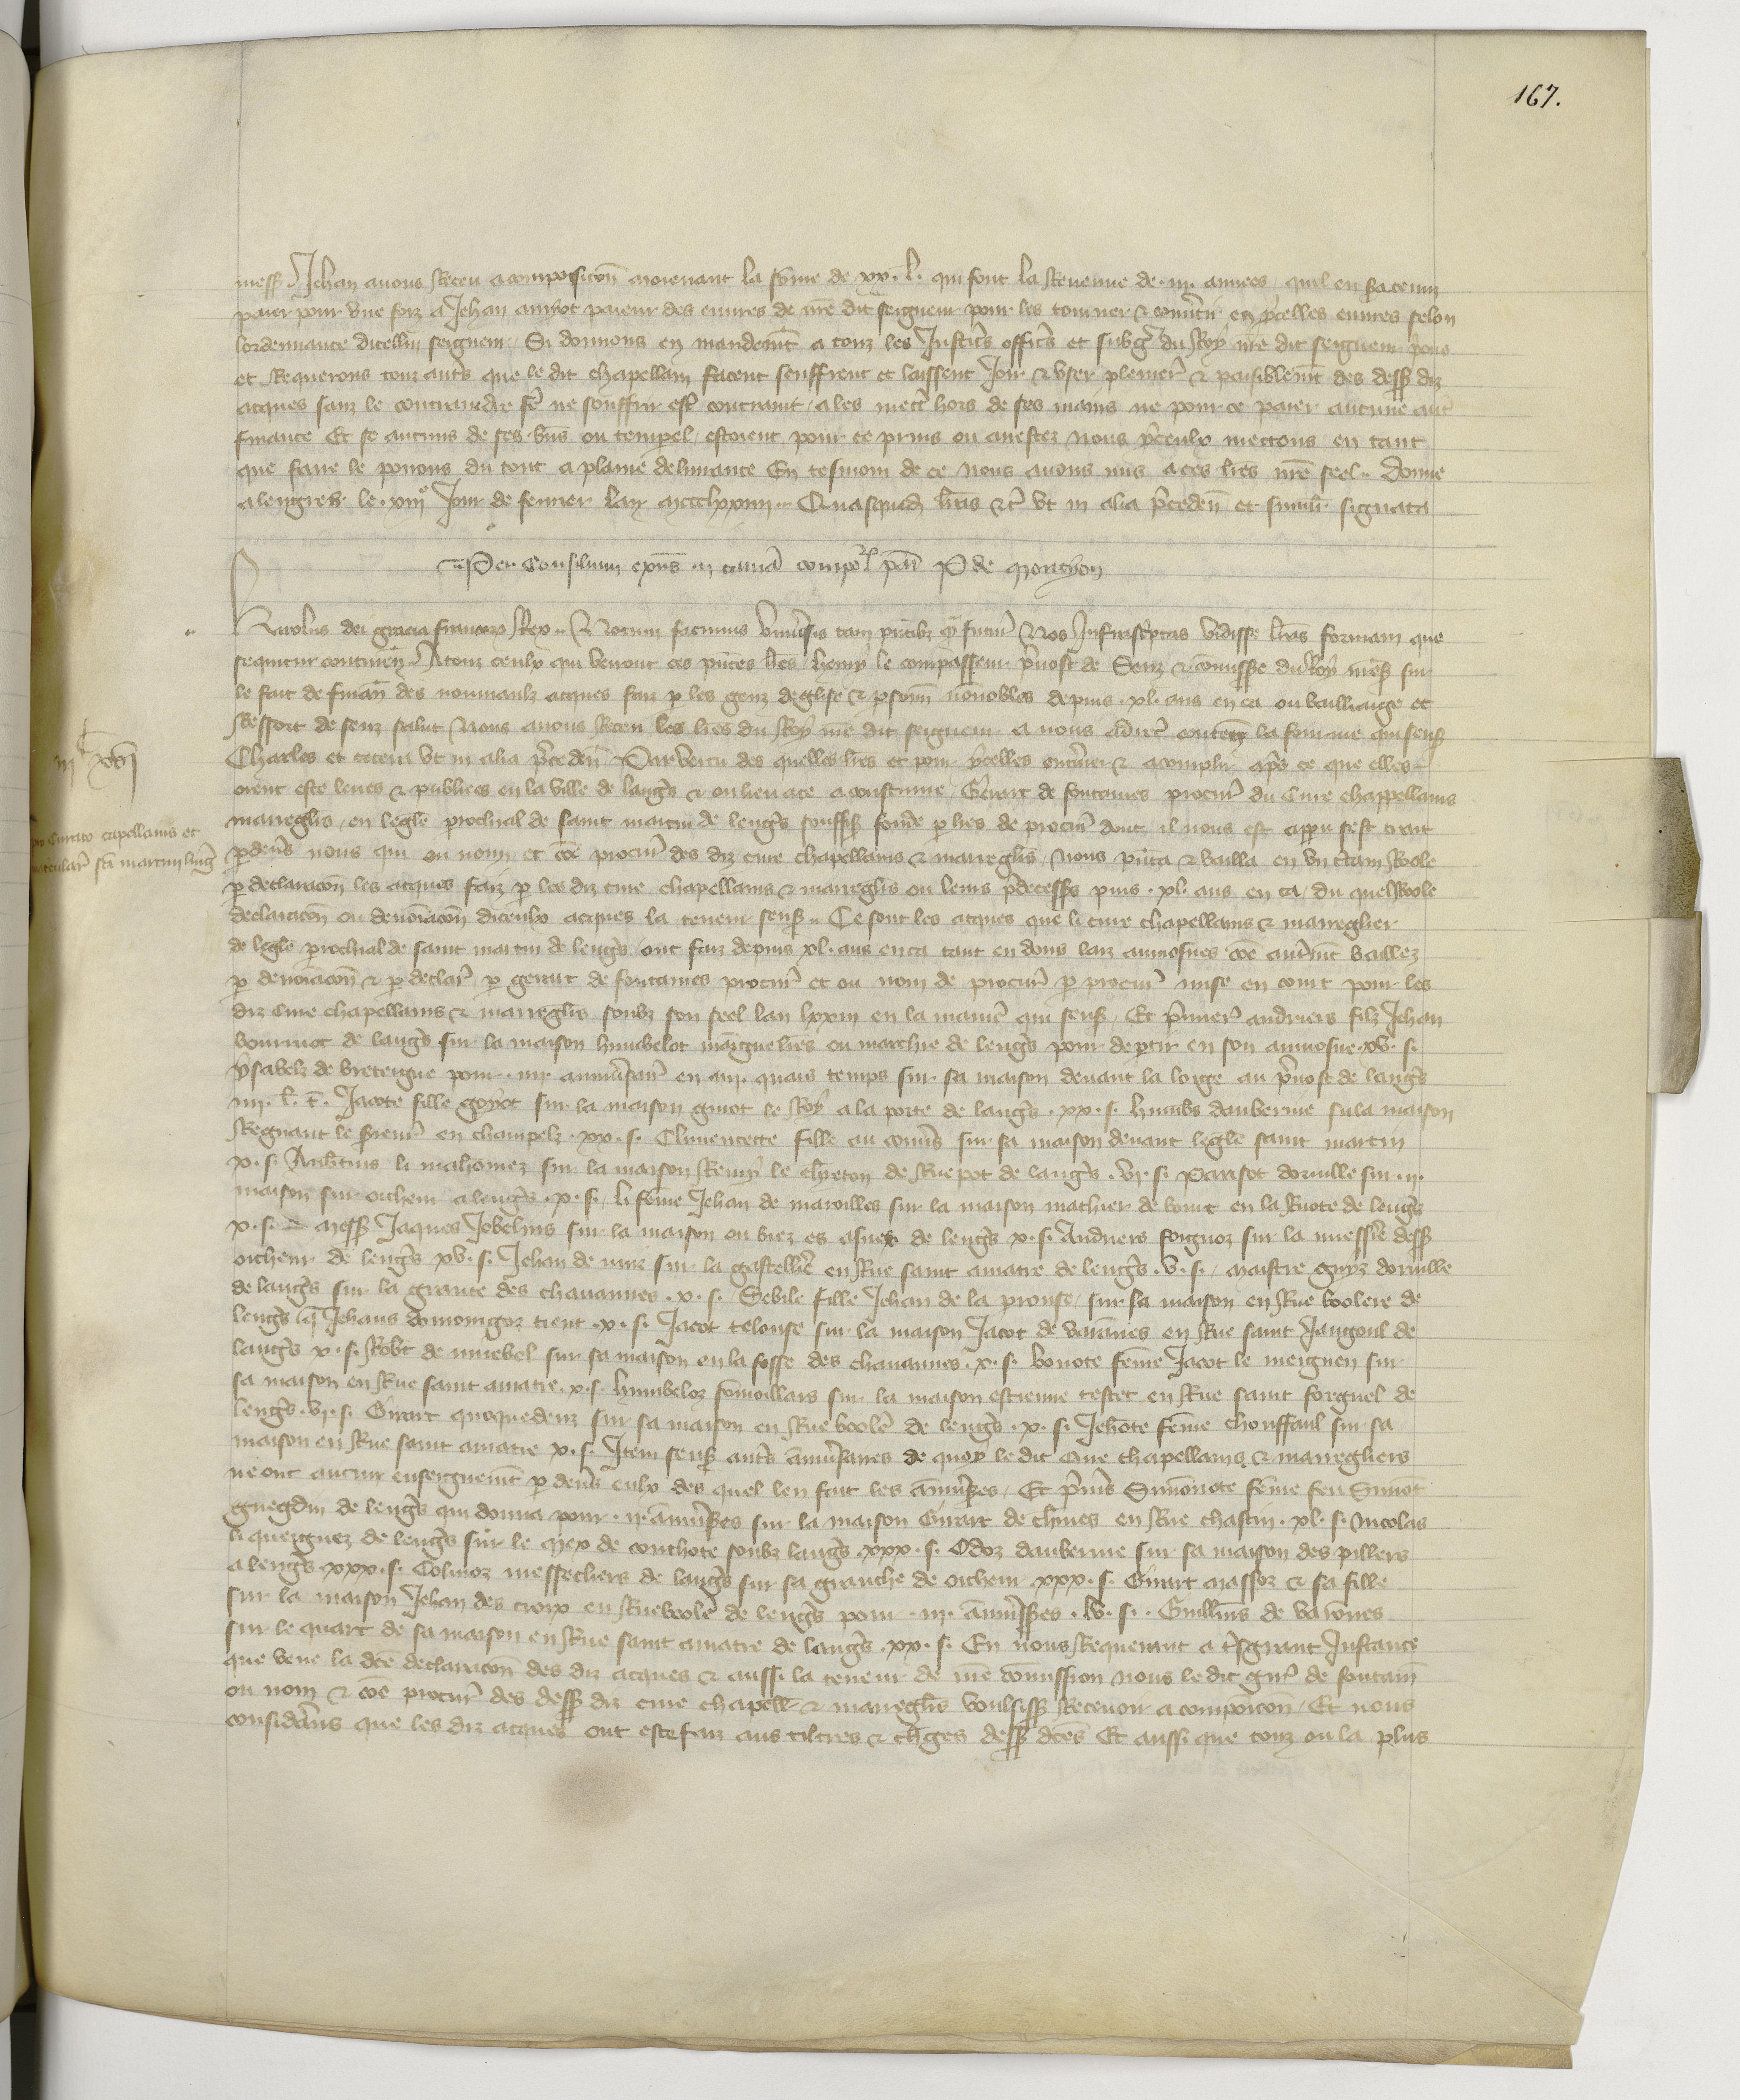 167.
mess Jehan avons Receu a composicōn moienant la sōme de .xx. l. qui font la Revenue de .iii. annees quil en sa
paier pour une foiz a Jehan amiot paieur des euvres de nrē dit seigneur pour les tourner & cōvtir en ycelles euvres selon
lordennance dicellui seigneur Si donnons en mandemt a touz les Justicrs officrs et subgz du Roy nrē dit seigneur prions
et Requerons touz autrs que le dit chapellain facent seuffrent et laissent Joir & user plenier & paisiblemt des dess diz
acques sanz le contraindre ne souffrir estre contraint a les mectre hors de ses mains ne pour ce paier aucune autre
finance Et se aucuns de ses biens ou tempel estoient pour ce prins ou arrestez nous yceulx mectons en tant
que faire le povons du tout a plaine delivrance En tesmoin de ce nous avons mis a ces lres nrē seel Donne
a lengres le .xiii e Jour de fevrier lan mccclxxiiii Quasquid lras &c ut in alia precedent et simili signata
Per Consilium exns in camera compot par P de Montyon
Karolus dei gracia francorum Rex Notum facimus universis tam presentibz quam futuris Nos Infrascriptas vidisse lras formam que
sequitur continen A touz ceulx qui verront ces presentes lres henry le compasseur prevost de Senz & cōmisse du Roy nrē s sur
le fait de finan des nouveaulx acques faiz p les genz deglise & psonn nōnobles depuis .xl. ans en ca ou bailliaige et
Ressort de senz salut Nous avons Receu les lres du Roy nrē dit seigneur a nous adrec conten la fourme qui sens
Charles et cetera ut in alia preceden Par vertu des quelles lres et pour ycelles enteriner & acomplir aprs ce que elles
orent este leues & publiees en la ville de langrs & ou lieu a ce acoustume Girart de fontaines procur du Cure chappellains
marreglis en leglē prochial de saint martin de lengrs souffis fonde p lres de procur dont il nous est apparu sest trait
pdevrs nous qui ou nom et cōe procur des diz cure chapellains & marreglis nous pnta & bailla en un ctain Role
p declaracōn les acques faiz p les diz cure chapellains & marreglis ou leurs predecesss puis .xl. ans en ca du quel Role
declaracōn ou denoiacōn diceulx acques la teneur sens Ce sont les acques que li cure chapellains & marreglier
de leglē prochial de saint martin de lengrs ont faiz depuis xl. ans en ca tant en dons laiz aumosnes cōe autremt baillez
p denoiacōn & p declar p gerart de fontaines procur et ou nom de procur p procur mise en court pour les
diz Cure chapellains & marreglis soubz son seel lan lxxiii en la manie qui sens Et premier andrieurs filz Jehan
bournot de langrs sur la maison humbelot ou marchie de lengrs pour deptir en son aumosne .xv. s.
ysabelz de bretengne pour .iii. anniversair en quars temps sur sa maison devant la loige au prevost de langrs
.iiii. l. t. Jacote fille goyot sur la maison guiot le Roy a la porte de langrs .xx. s. humbs dauberive su la maison
Regnaut le frenie en champelz .xx. s. Climencette fille au coms sur sa maison devant leglē saint martin
x. s. Aubtins li mahomez sur la maison Remy le chreton de Rue pot de langrs .vi. s. Parisot dorville sur .ii.
maison sur oicheur a lengrs .x. s. li feme Jehan de marvilles sur la maison mathier de vont en la Ruote de lengrs
x. s. Mess Jaques Jobelins sur la maison ou biez es asnes de lengrs x. s. Andriers forgnoz sur la messiere dess
oicheur de lengrs xv. s. Jehan de sur la gastelliē en Rue saint amatre de lengrs .v. s. Maistre guyz dorville
de langrs sur la grante des chavannes .x. s. Sebile fille Jehan de la prouse sur sa maison en Rue boolere de
lengrs q Jehans domongoz tient .x. s. Jacot telouse sur la maison Jacot de varānes en Rue saint Jangoul de
langrs x. s. Robt de mirebel sur sa maison en la fosse des chavannes .x. s. bonote feme Jacot le meignen sur
sa maison en Rue saint amatre .x. s. humbeloz sur la maison estienne testet en Rue saint forguel de
lengrs .vi. s. Girart quoquedenz sur sa maison en Rue boolē de lengrs .x. s. Jehōte feme chouffaul sur sa
maison en Rue saint amatre x. s. Item sens autrs anniversaires de quoy le dit Cure chapellains & marregliers
ne ont aucun enseignemt p devrs eulx des quel len fait les anniversres Et prems Simonote feme feu Simot
guegdin de lengrs qui donna pour .ii. anniversres sur la maison Girart de chives en Rue chastin .xl. s. Nicolas
li queignez de lengrs sur le mex de couchote soubz langrs .xxx. s. Odoz dauberive sur sa maison des pillers
a lengrs .xxx. s. Colinoz messecliers de langrs sur sa granche de oicheur .xxx. s. Girart massoz & sa fille
sur la maison Jehan des croix en Rue boolē de lengrs pour .iii. anniversres .lv. s. Guillms de varōnes
sur le quart de sa maison en Rue saint amatre de langrs .xx. s. En nous Requerant a tresgrant Instance
que veue la dce declaracōn des diz acques & aussi la teneur de nrē cōmission nous le dit girt de fontain
ou nom & cōe procur des dess diz cure chapell & marreglis voulsiss Recevoir a composicōn Et nous
considerans que les diz acques ont este faiz aus tiltres & chges dess dces Et aussi que touz ou la plus
pro Curato capellanis et
matriculariis sci martini ling